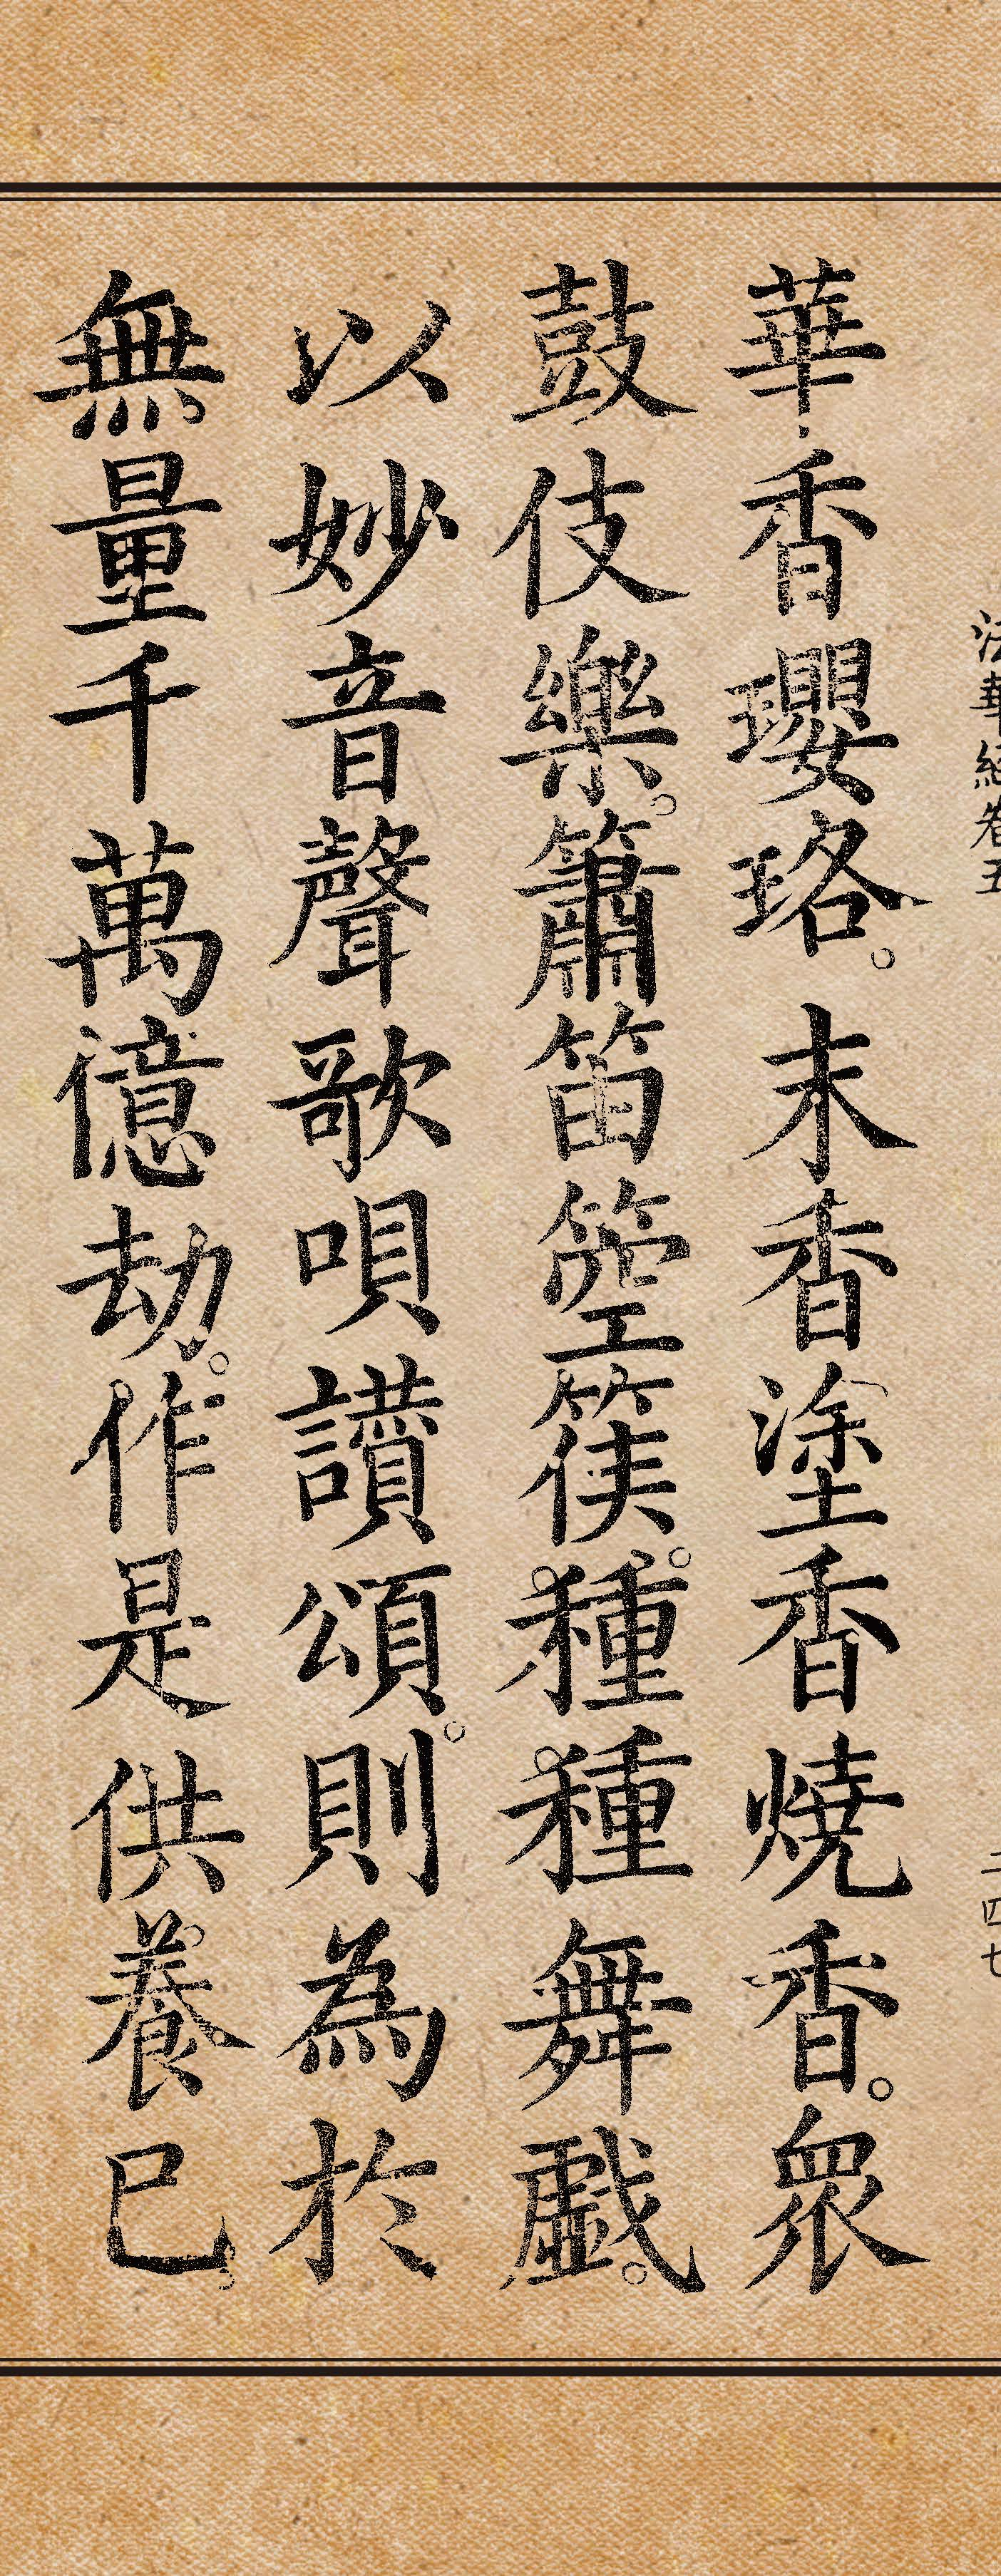 法華經卷五 二四七
華香瓔珞。末香塗香燒香。眾
鼓伎樂。簫笛箜篌。種種舞戲。
以妙音聲歌唄讚頌。則為於
無量千萬億劫。作是供養已。